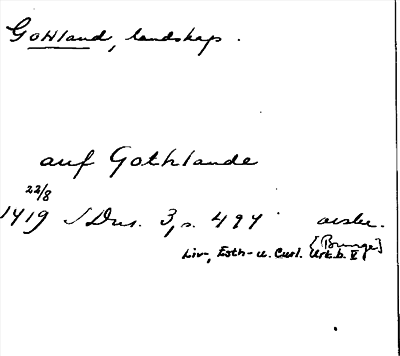 Gotland, landskap.
auf Gothlande
22/8
1419 SDns. 3, s. 497 avskr.
[Bunge]
Liv-, Esth- u. Curl. Urk.b. V